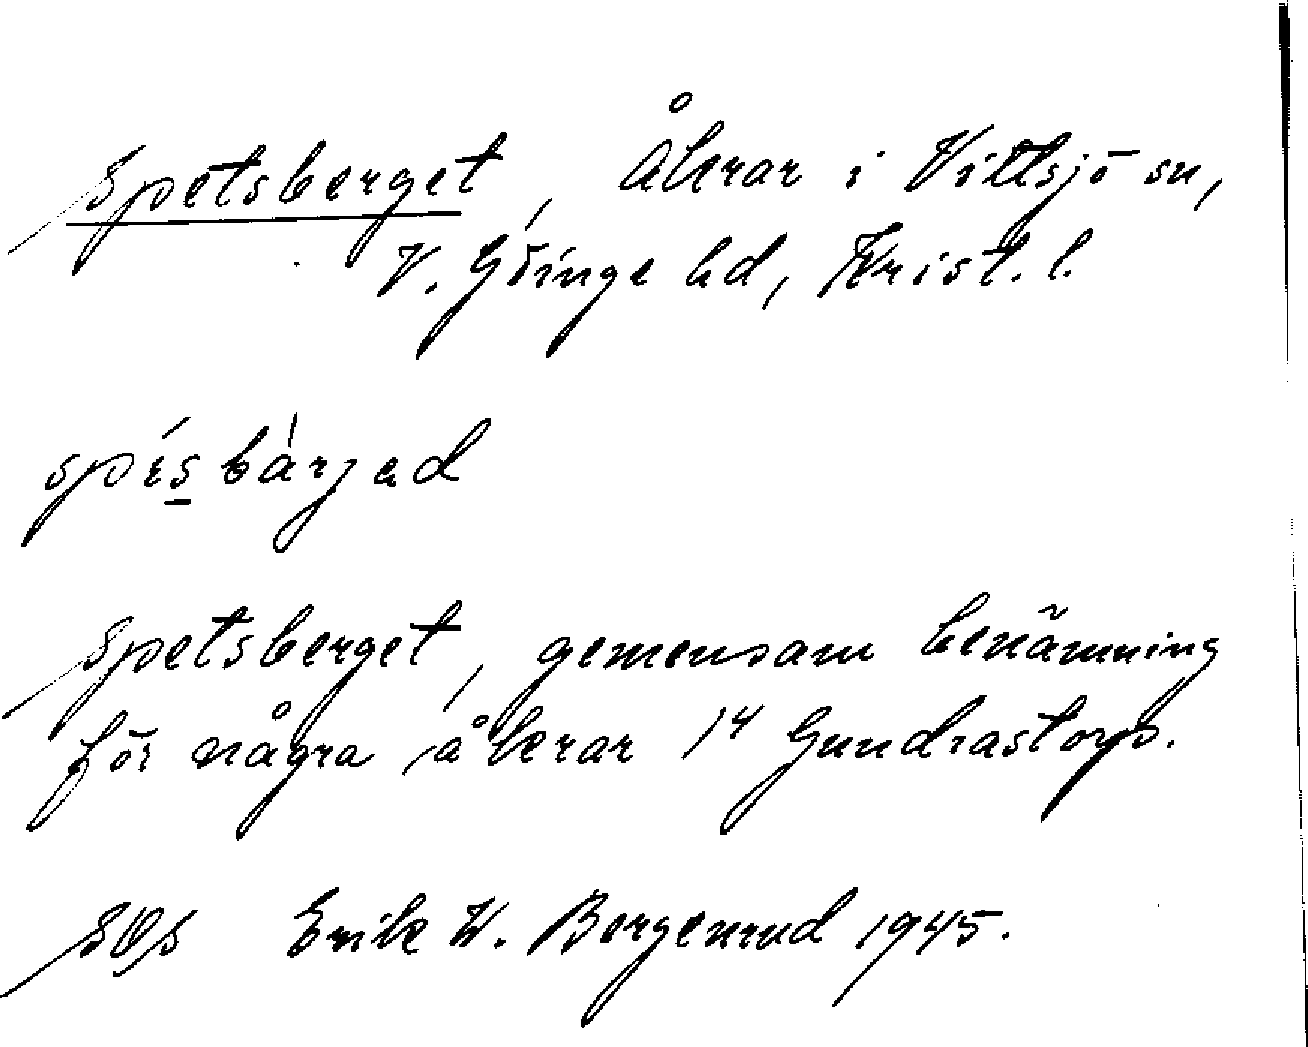 Spetsberget, Åkrar i Vittsjö sn,
V. Göinge hd, Krist. l.
spísbàrjəd
Spetsberget, gemensam benämning
för några åkrar 1⁴ Gundrastorp.
Erik W. Bergenrud 1945.